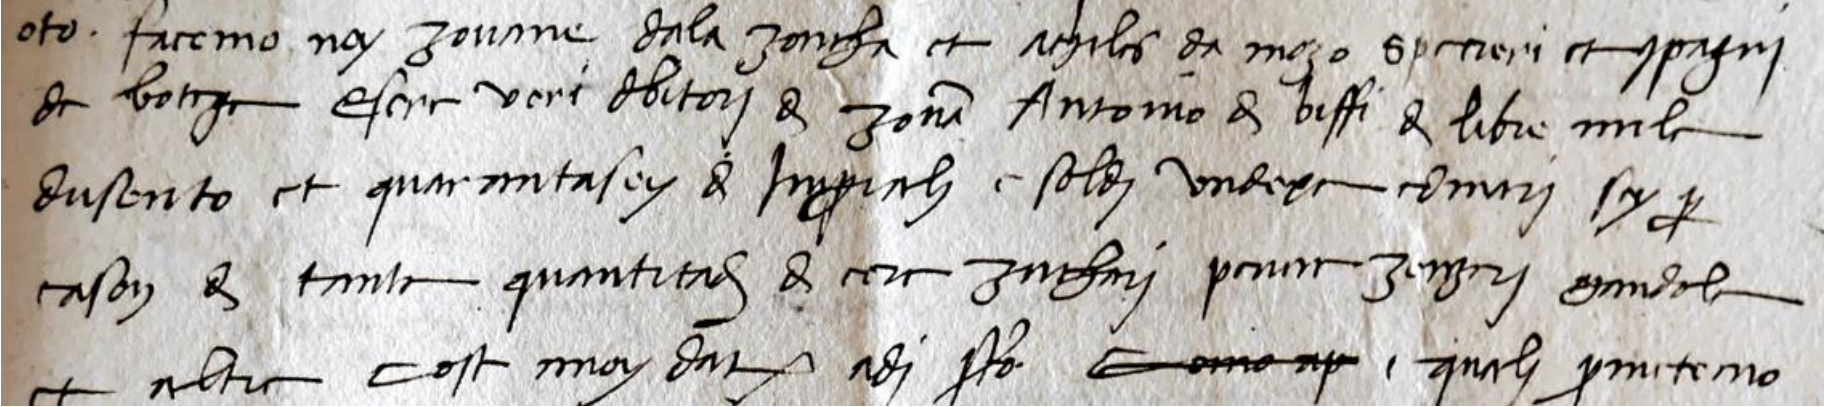 oto. facemo noy zovane dala zoncha et achiles da mozo specieri et 9pagni
de botege esere veri dbitorj d zovā Antonio d biffi d libre mile
dusento et quarantasey d Imperialj e soldj undexe dinari sey p
cason d tante quantitad d cere zuchari pevere zenzerj mandole
et altre cose a noy date adi pto. Como ap i qualj prometemo